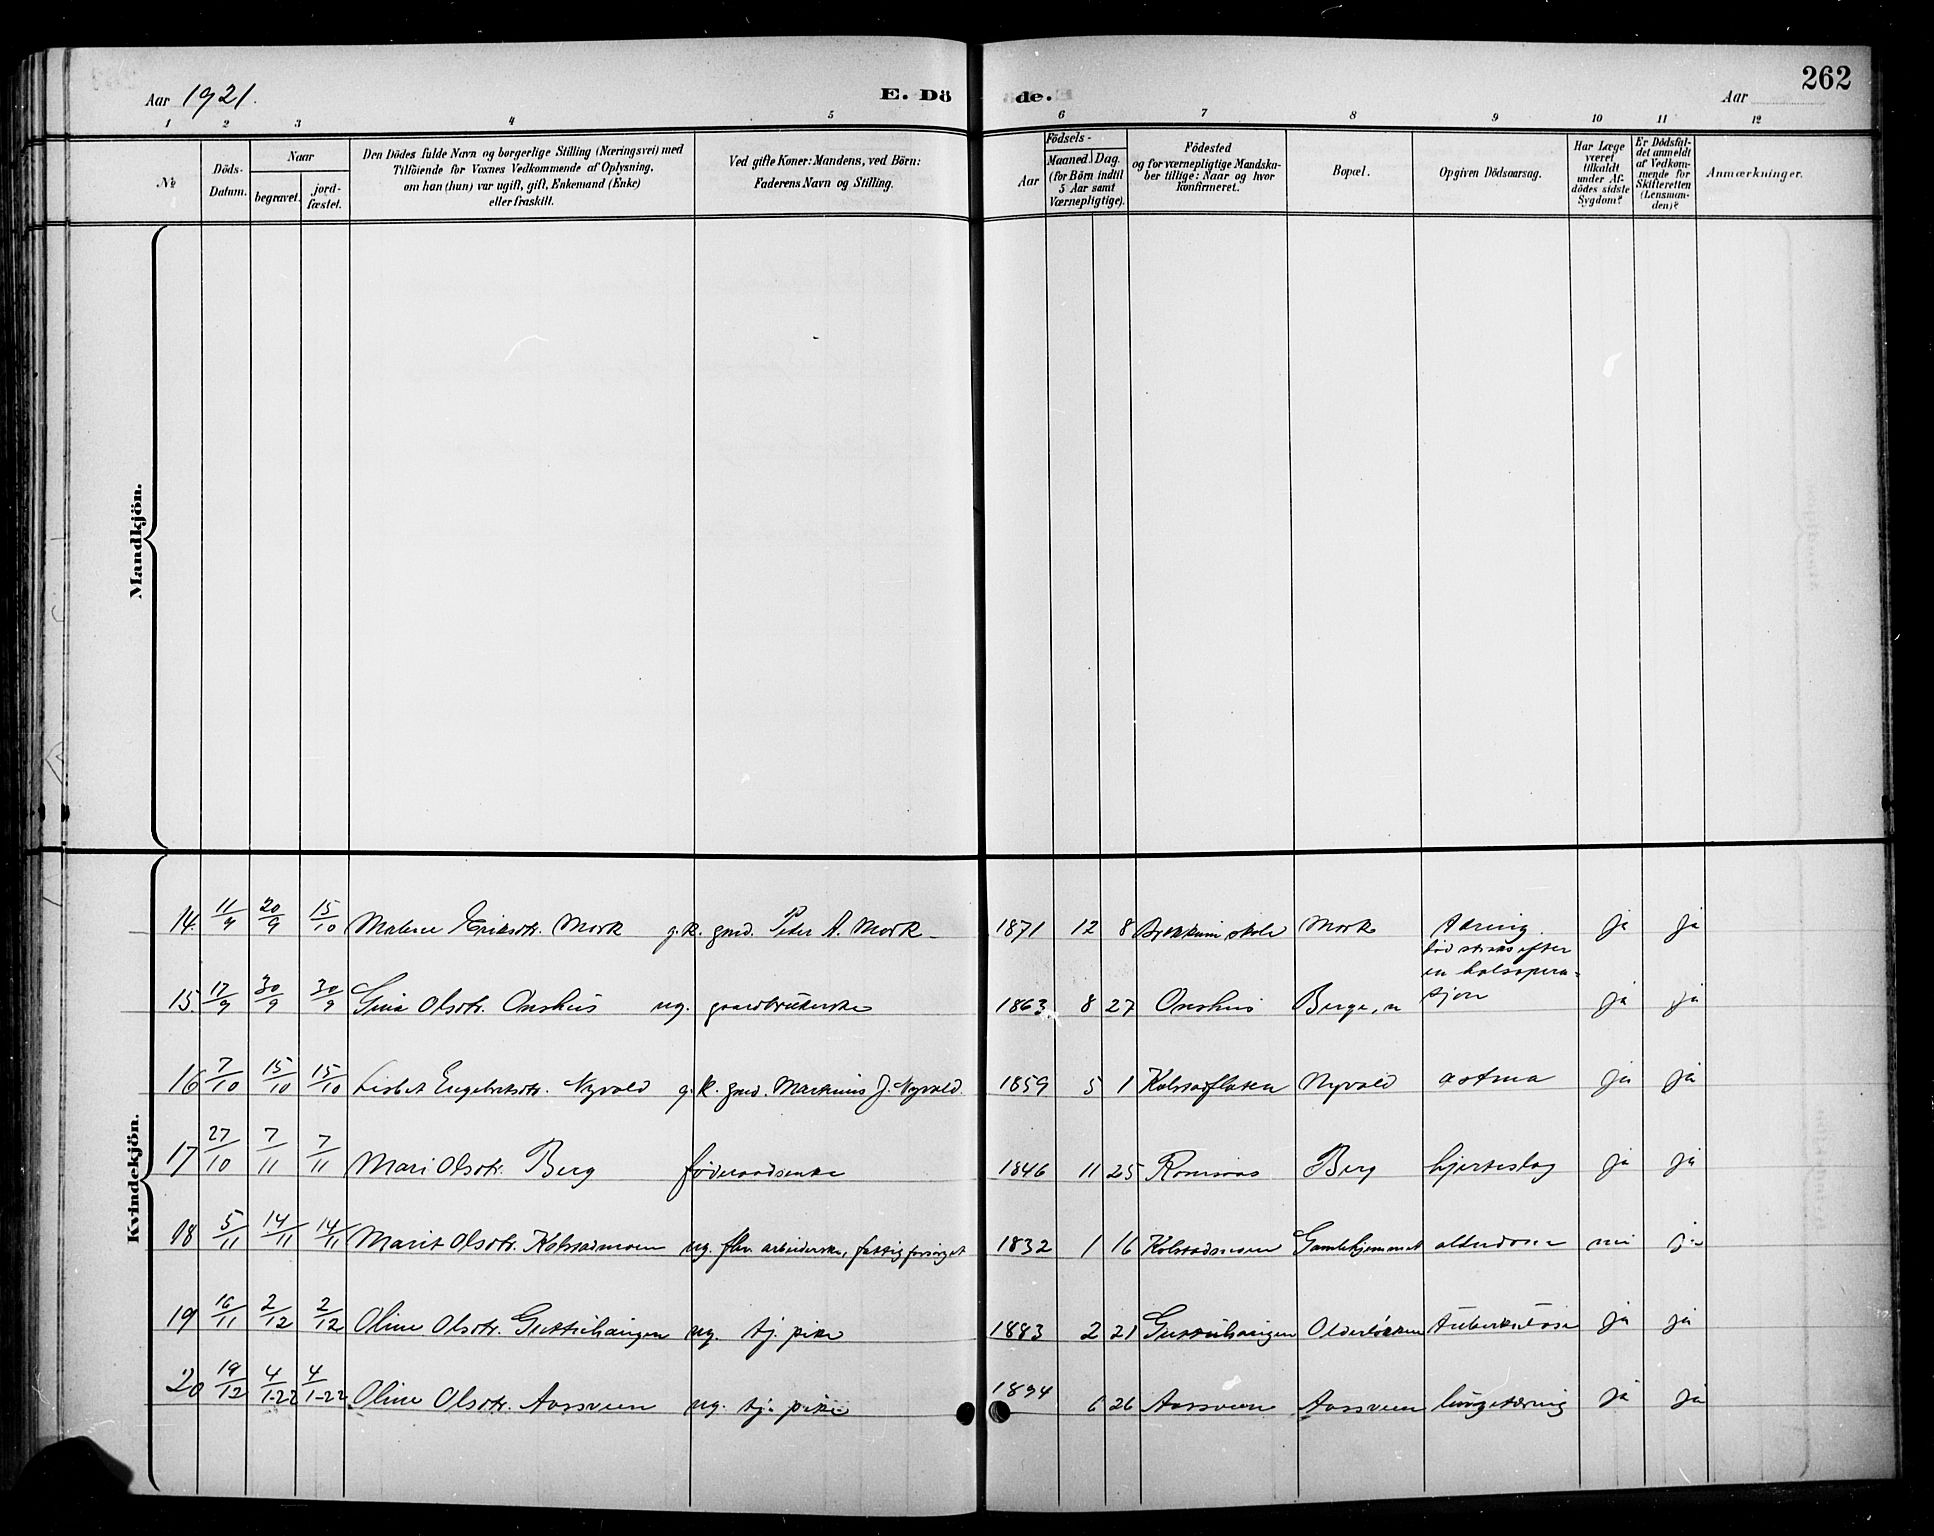 262
Aar 1921.
E. Dö de.
Aar
1 2 3 4 5 6 7 8 9 10 11 12
No
Döds-Datum.
Naar
begravet.
jord-fæstet.
Den Dödes fulde Navn og borgerlige Stilling (Næringsvei) med
Tilföiende for Voxnes Vedkommende af Oplysning,
om han (hun) var ugift, gift, Enkemand (Enke)
eller fraskilt.
Ved gifte Koner: Mandens, ved Börn:
Faderens Navn og Stilling.
Födsels-
Aar
Maaned. Dag.
(for Börn indtil
5 Aar samt
Værnepligtige).
Födested
og for værnepligtige Mandska-
ber tillige: Naar og hvor
konfirmeret.
Bopæl.
Opgiven Dödsaarsag.
Har Læge
været
tilkaldt
under Af-
dödes sidste
Sygdom?
Er Dödsfal-
det anmeldt
af Vedkom-
mende for
Skifteretten
(Lensman-
den)?
Anmærkninger.
Mandkjön.
Kvindekjön.
14. 11/9 20/9 15/10 Malene Eriksdtr. Mork g.k. gmd. Peter A. Mork 1871 12 8 skole Mork tæring. ja ja
15. 17/9 30/9 30/9 Sina Olsdtr. Onshus ug. gaardbrukerske 1863 8 27 Onshus Berge, n død straks efter
en halsopera-
sjon ja ja
16 7/10 15/10 15/10 Lisbet Engebretsdtr. Nyvold g.k. gmd. Martinius J. Nyvold. 1859 5 1 Kolstadflaten Nyvold astma ja ja
17 27/10 7/11 7/11 Mari Olsdtr. Berg føderaadsenke 1846 11 25 Romsaas Berg hjerteslag ja ja
18 5/11 14/11 14/11 Marit Olsdtr. Kolstadmoen ug. fhv. arbeiderske, fattigforsørget 1832 1 16 Kolstadmoen Gamlehjemmet alderdom nei ja
19 16/11 2/12 2/12 Oline Olsdtr. ug. tj. pike 1883 2 21 Olderløkken tuberkulose ja ja
20 19/12 4/1-22 4/1-22 Oline Olsdtr. Aarsveen ug. tj. pike 1894 6 26 Aarsveen Aarsveen lungetæring ja ja